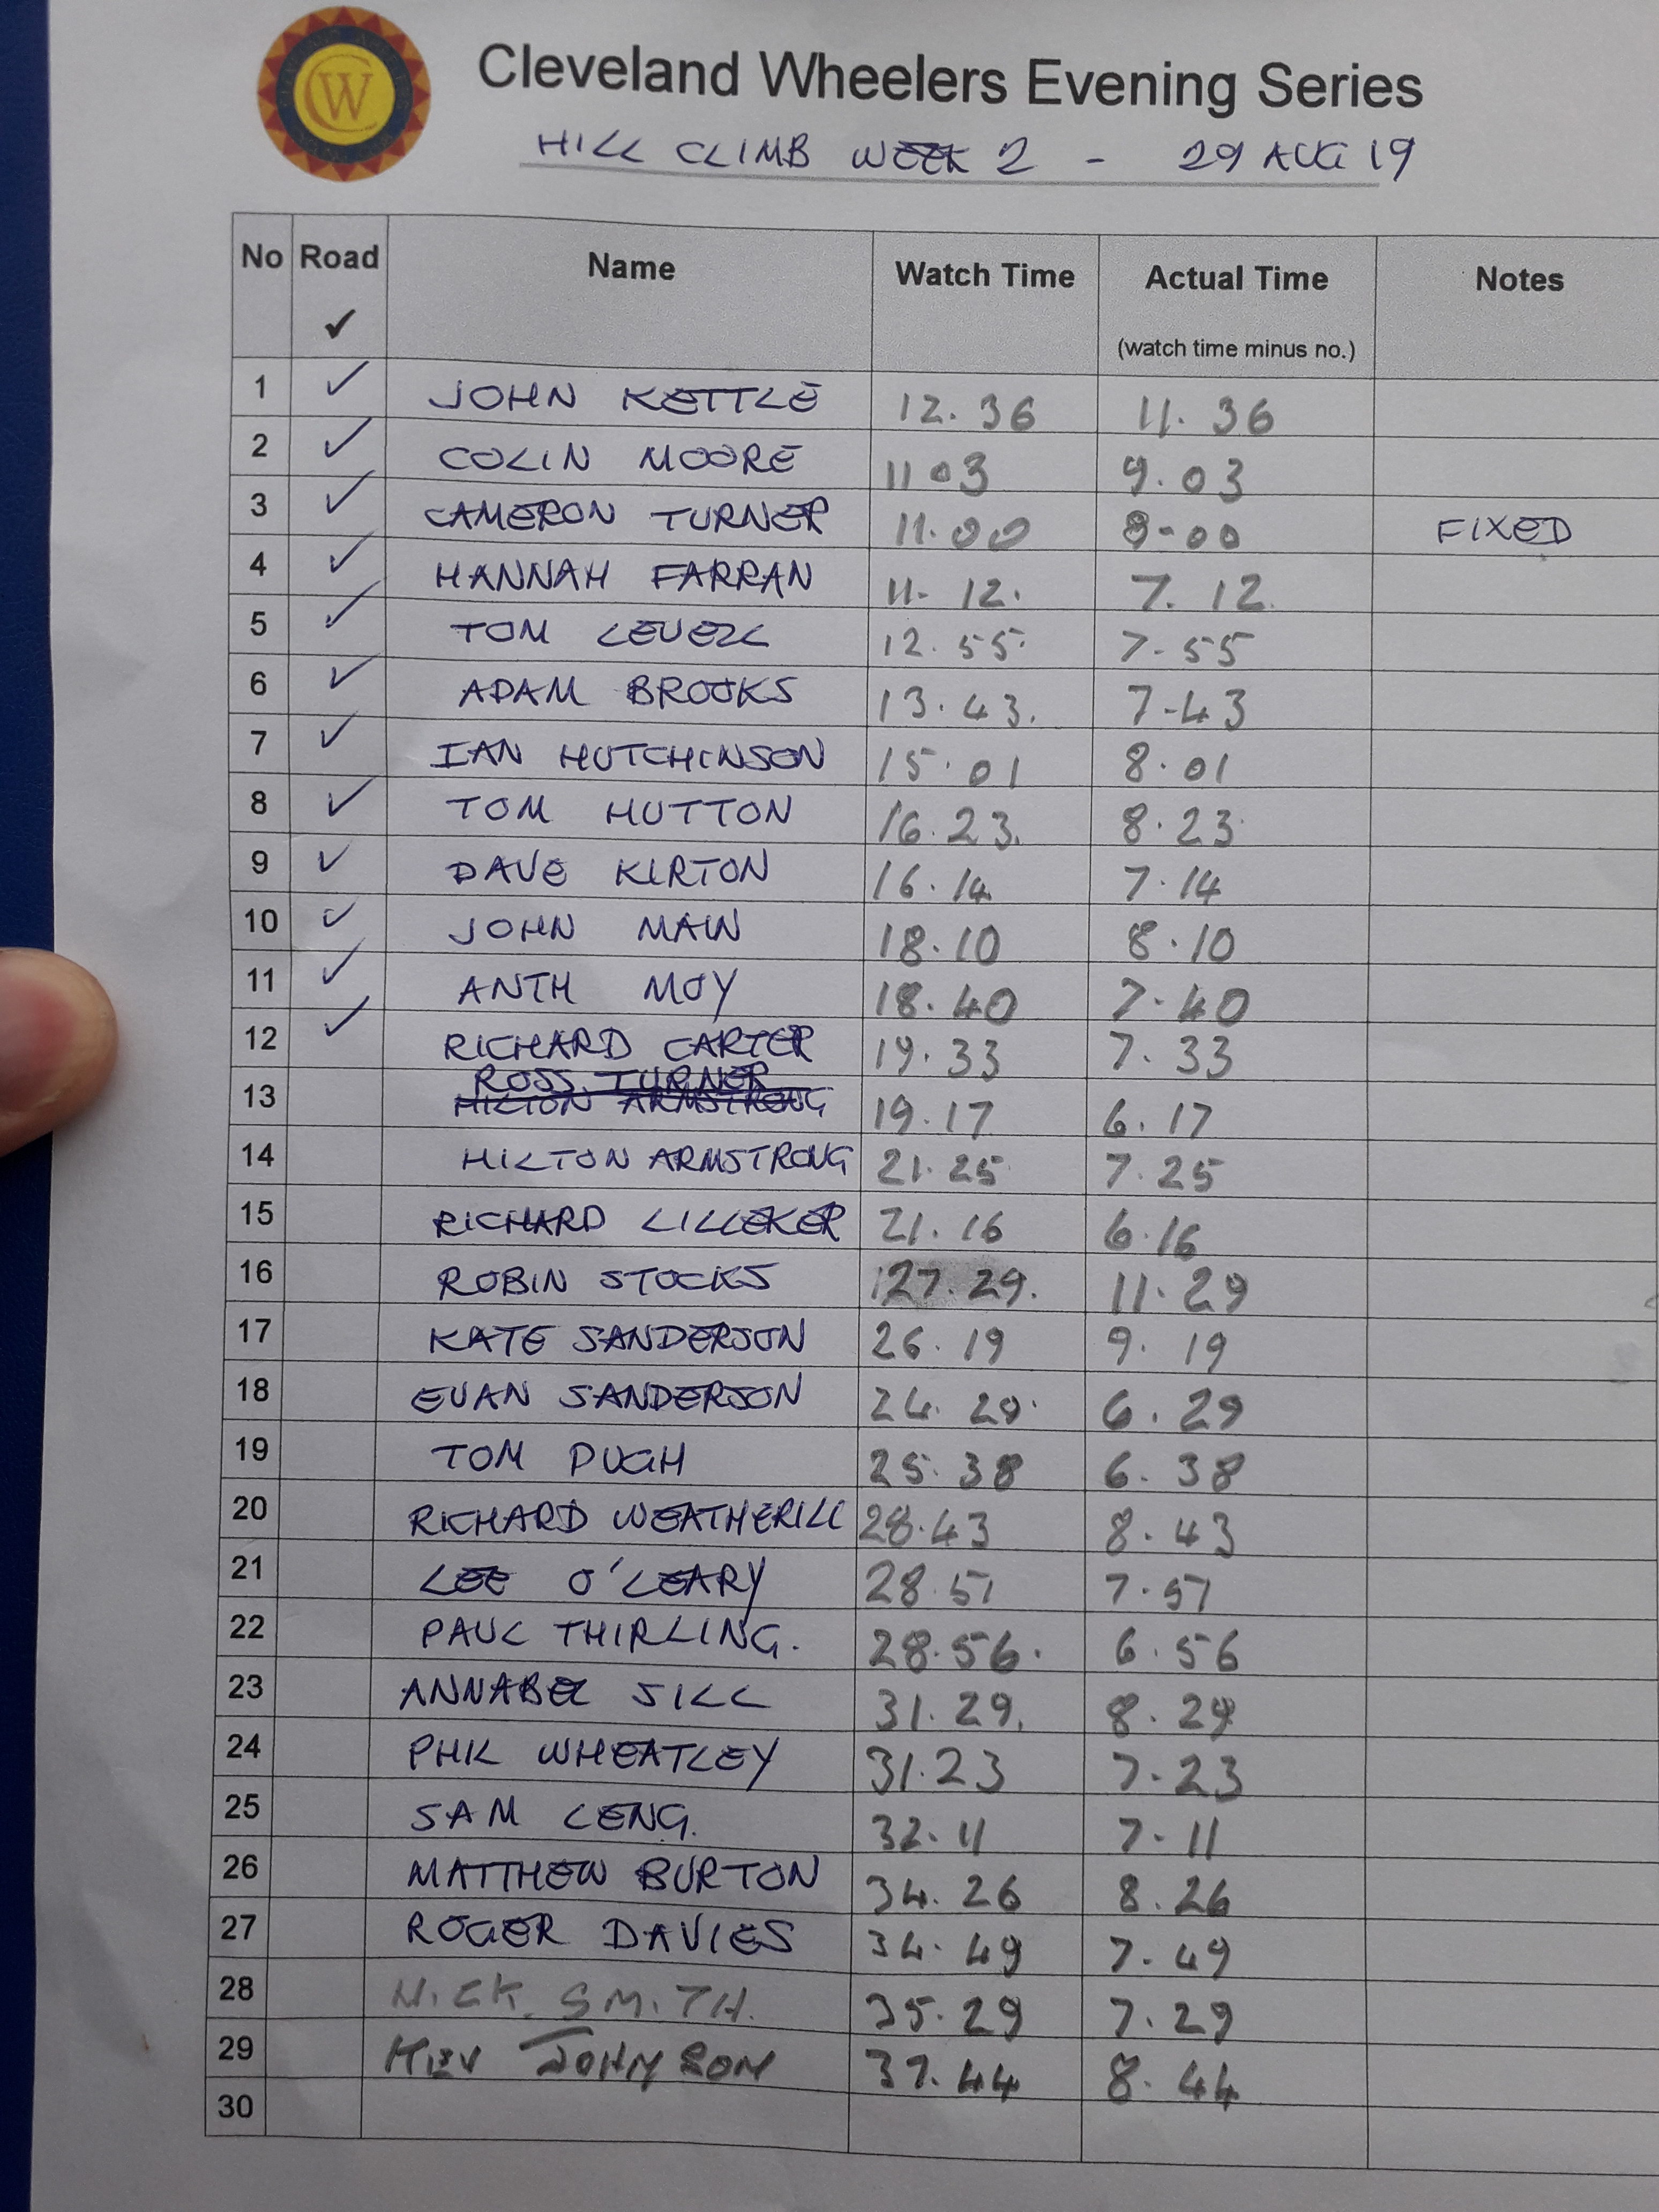 CW
Cleveland Wheelers Evening Series
HILL CLIMB WEEK 2 - 29 AUG 19
No Road ✓ Name Watch Time Actual Time (watch time minus no.) Notes
1 ✓ JOHN KETTLE 12.36 11.36
2 ✓ COLIN MOORE 11 03 9.03
3 ✓ CAMERON TURNER 11.00 8-00 FIXED
4 ✓ HANNAH FARRAN 11- 12. 7. 12.
5 ✓ TOM LEVELL 12.55. 7-55
6 ✓ ADAM BROOKS 13.43. 7-43
7 ✓ IAN HUTCHINSON 15.01 8.01
8 ✓ TOM HUTTON 16.23. 8.23
9 ✓ DAVE KIRTON 16.14 7.14
10 ✓ JOHN MAIN 18.10 8.10
11 ✓ ANTH MOY 18.40 7.40
12 ✓ RICHARD CARTER 19.33 7.33
ROSS TURNER
13 HILTON ARMSTRONG 19.17 6.17
14 HILTON ARMSTRONG 21.25 7.25
15 RICHARD LILLEKER 21.16 6.16
16 ROBIN STOCKS 27.29. 11.29
17 KATE SANDERSON 26.19 9.19
18 EVAN SANDERSON 24.29. 6.29
19 TOM PUGH 25.38 6.38
20 RICHARD WEATHERILL 28.43 8.43
21 LEE O'LEARY 28.57 7.57
22 PAUL THIRLING. 28.56. 6.56
23 ANNABEL SILL 31.29. 8.29
24 PHIL WHEATLEY 31.23 7-23
25 SAM LENG. 32.11 7-11
26 MATTHEW BURTON 34.26 8.26
27 ROGER DAVIES 34.49 7.49
28 NICK SMITH. 35.29 7.29
29 KEV JOHNSON 37.44 8.44
30